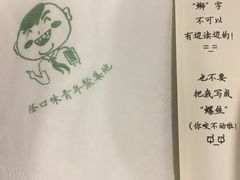 怪口味青年聚集地
“螄”字
不可以
有边读边的！
=_=
也不要
把我写成
“螺丝”
(你咬不动啦)